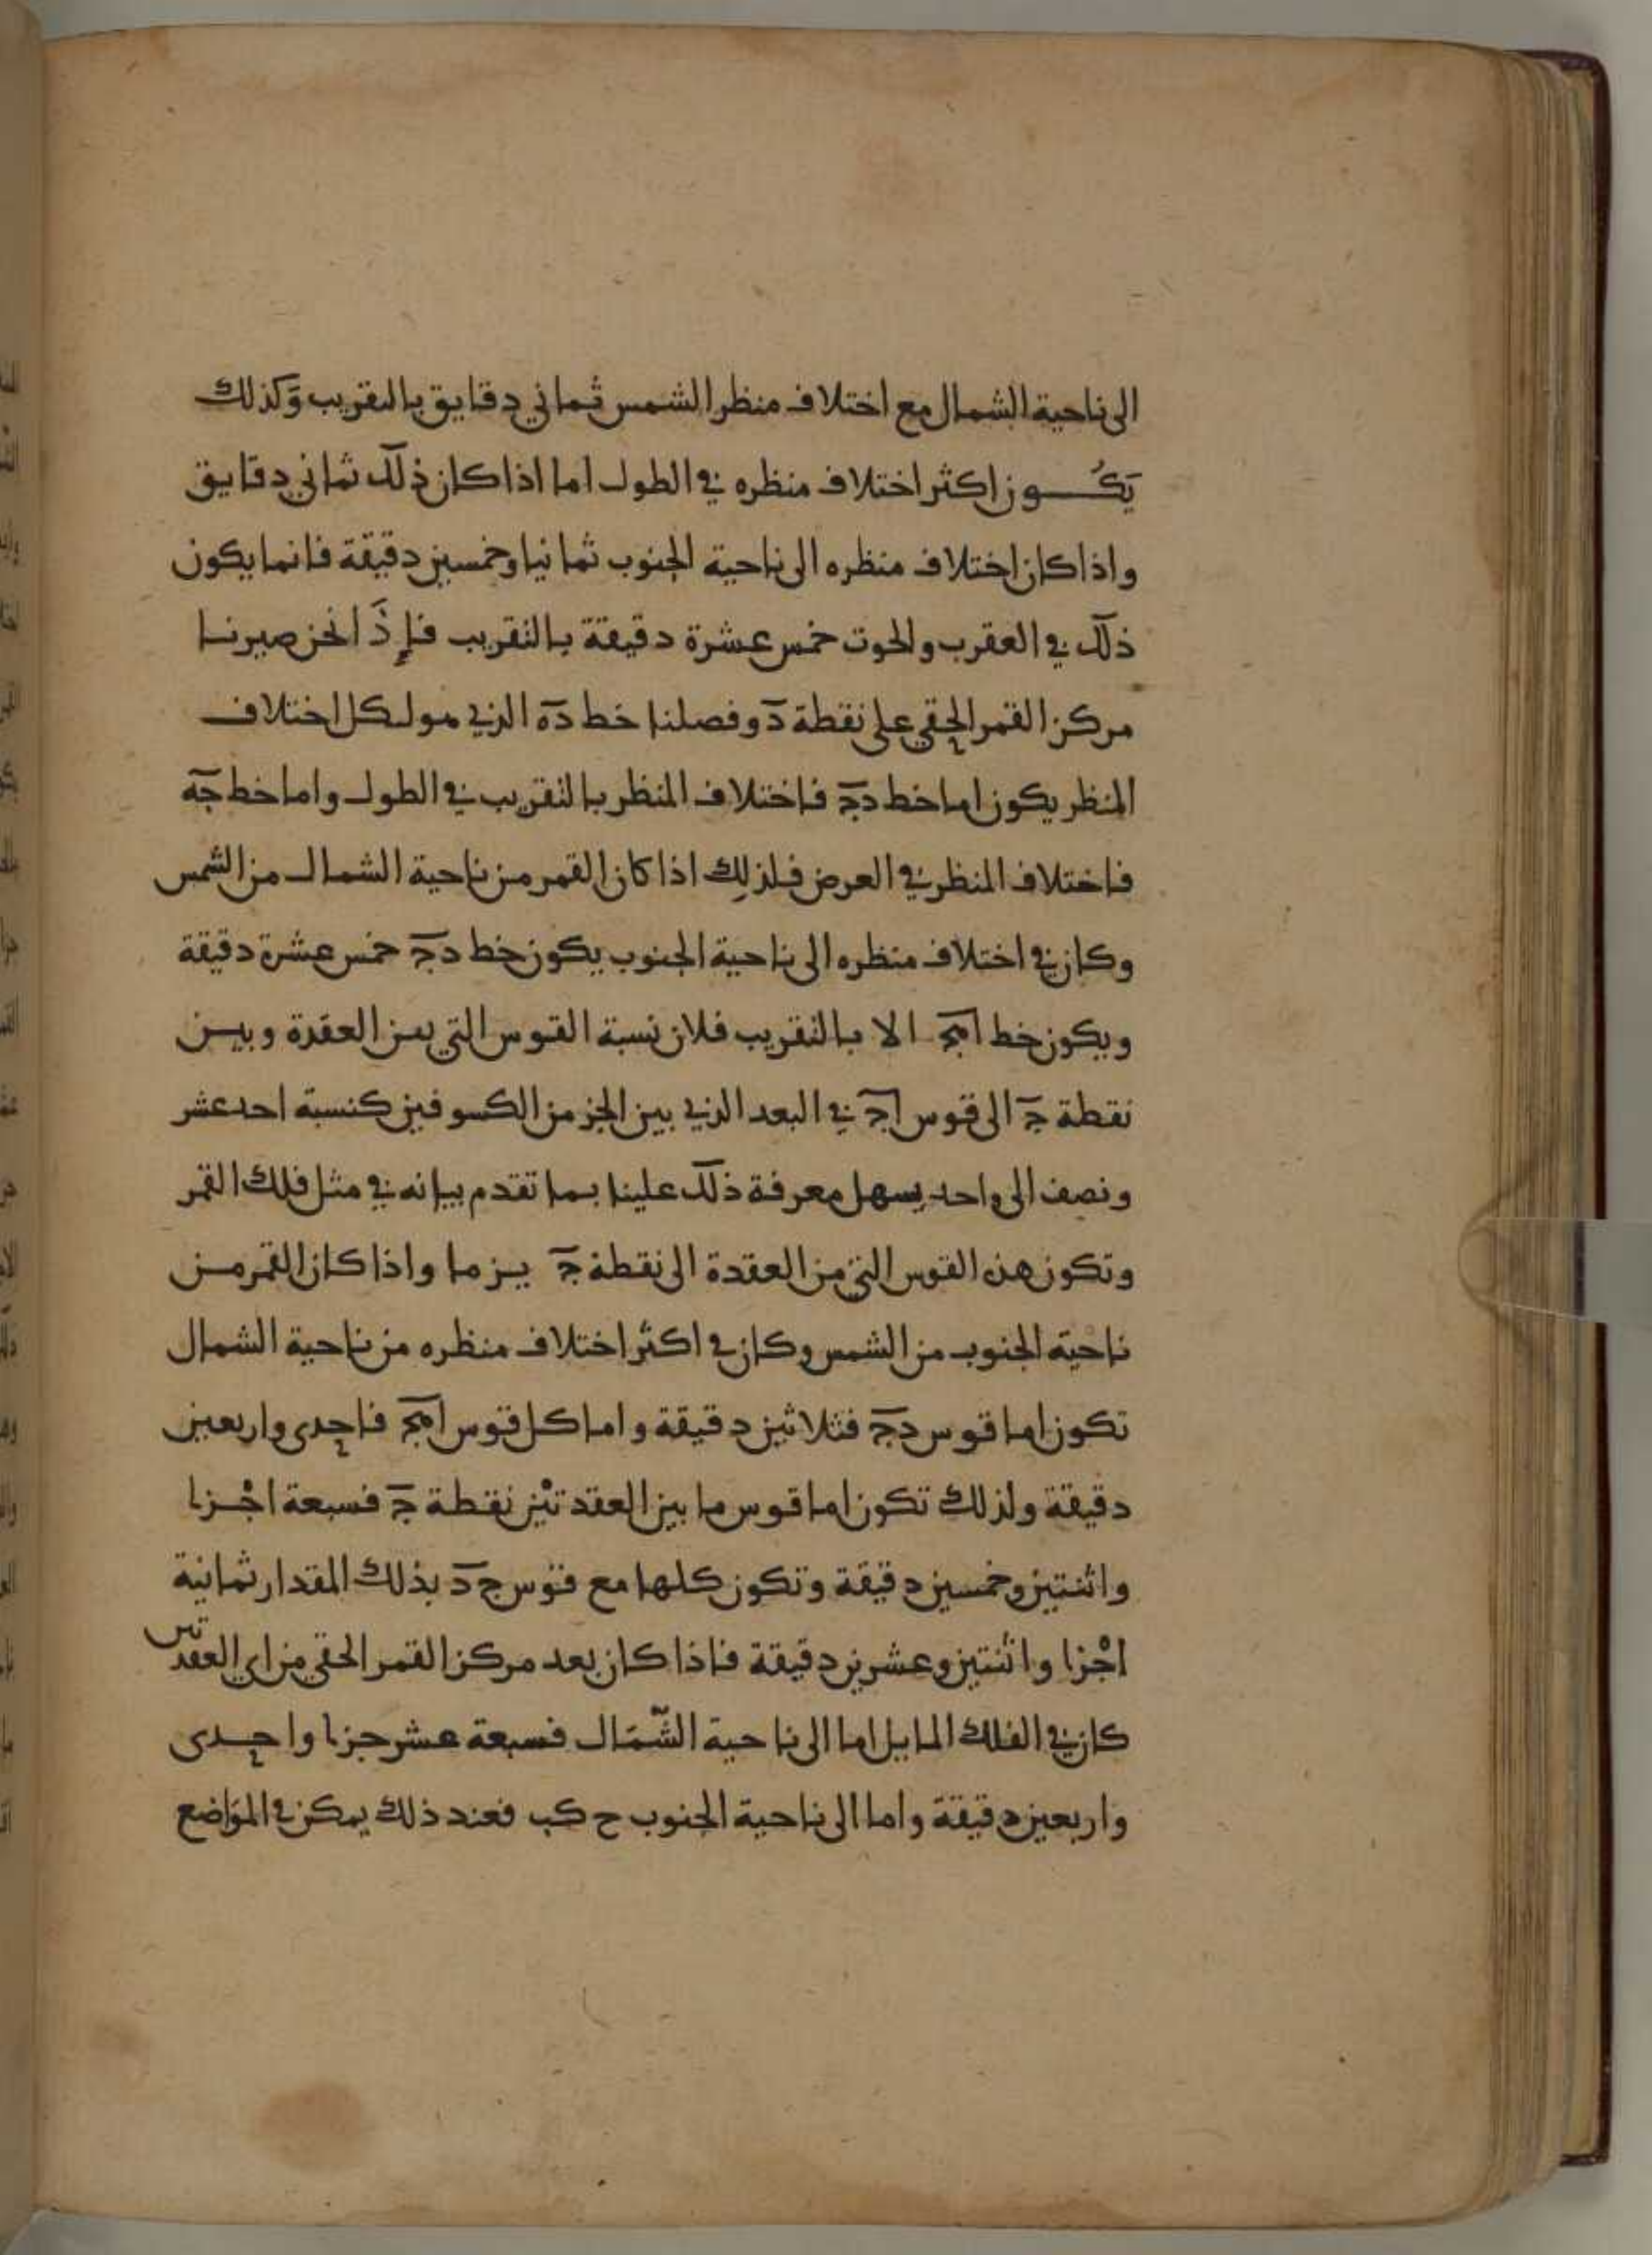 الى ناحية الشمال مع اختلاف منظر الشمس ثماني دقايق بالتقريب وَكذلك
يَكُون اكثر اختلاف منظره في الطول اما اذا كان ذلك ثماني دقايق
واذا كان اختلاف منظره الى ناحية الجنوب ثمانيا وخمسين دقيقة فانما يكون
ذلك في العقرب والحوت خمس عشرة دقيقة بالتقريب فإِذَا نحن صيرنا
مركز القمر الحقي على نقطة د وفصلنا خط ده الذي هو لكل اختلاف
المنظر يكون اما خط دج فاختلاف المنظر بالتقريب في الطول واما خط جه
فاختلاف المنظر في العرض فلذلِك اذا كان القمر من ناحية الشمال من الشمس
وكان في اختلاف منظره الى ناحية الجنوب يكون خط دج خمس عشرة دقيقة
ويكون خط اهج الا بالتقريب فلان نسبة القوس التي بين العقدة وبين
نقطة ج الى قوس اج في البعد الذي بين الجز من الكسوفين كنسبة احد عشر
ونصف الى واحد يسهل معرفة ذلك علينا بما تقدم بيانه في مثل فلك القمر
وتكون هذه القوس التي من العقدة الى نقطة ج يز ما واذا كان القمر من
ناحية الجنوب من الشمس وكان في اكثر اختلاف منظره من ناحية الشمال
تكون اما قوس دج فثلاثين دقيقة واما كل قوس اهج فاحدى واربعين
دقيقة ولذلك تكون اما قوس ما بين العقدتيْن نقطة ج فسبعة اجْزا
واثنتين وخمسين دقيقة وتكون كلها مع قوس ج د بذلك المقدار ثمانية
اجْزا واثنتين وعشرين دقيقة فاذا كان بعد مركز القمر الحقي من اي العقدتين
كان في الفلك المايل اما الى ناحية الشّمَال فسبعة عشر جزا واحدى
واربعين دقيقة واما الى ناحية الجنوب ح كب فعند ذلك يمكن في الموَاضع